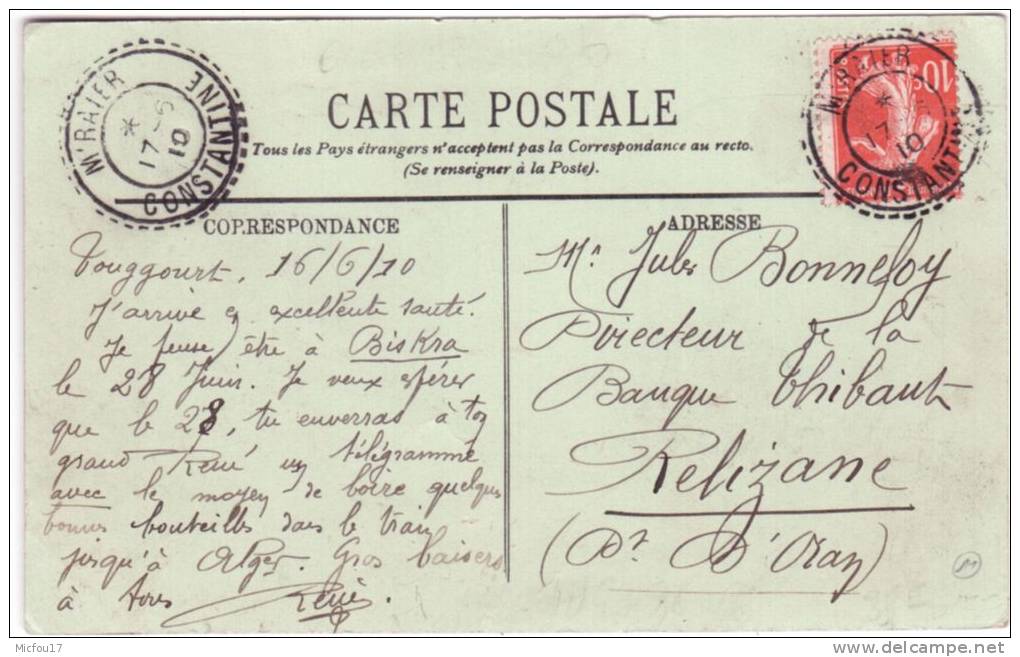 M'RAIER
CONSTANTINE
*
17 - 6
10
CARTE POSTALE
Tous les Pays étrangers n'acceptent pas la Correspondance au recto.
(Se renseigner à la Poste).
M'RAIER
CONSTANTINE
*
17
10
10
CORRESPONDANCE
Touggourt, 16/6/10
J'arrive en excellente santé.
Je pense être à Biskra
le 28 Juin. Je veux espérer
que le 28, tu enverras à ton
grand René un télégramme
avec le moyen de boire quelques
bonnes bouteilles dans le train
jusqu'à Alger. Gros baisers
à tous René
ADRESSE
Mr. Jules Bonnefoy
Directeur de la
Banque Thibaut
Relizane
(Dt. D'Oran)
M
Micfou17
www.delcampe.net